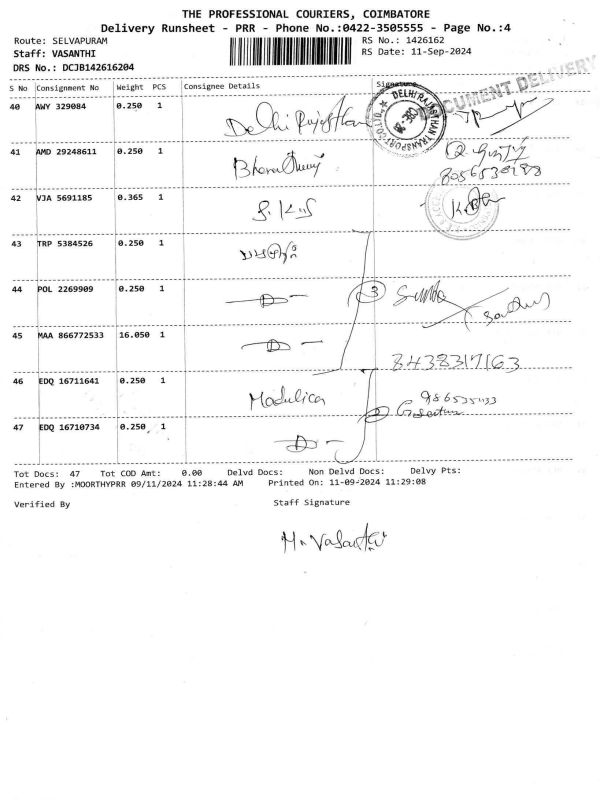 THE PROFESSIONAL COURIERS, COIMBATORE
Delivery Runsheet - PRR - Phone No.:0422-3505555 - Page No.:4
Route: SELVAPURAM RS No.: 1426162
Staff: VASANTHI RS Date: 11-Sep-2024
DRS No.: DCJB142616204
S No Consignment No Weight PCS Consignee Details Signature
DOCUMENT DELIVERY
40 AWY 329084 0.250 1 Delhi Rajasthan
DELHI RAJASTHAN TRANSPORT CO LTD
41 AMD 29248611 0.250 1
42 VJA 5691185 0.365 1
43 TRP 5384526 0.250 1
44 POL 2269909 0.250 1 -D- 3
45 MAA 866772533 16.050 1 -D- 8438317163
46 EDQ 16711641 0.250 1
47 EDQ 16710734 0.250 1 -D- 2
Tot Docs: 47 Tot COD Amt: 0.00 Delvd Docs: Non Delvd Docs: Delvy Pts:
Entered By :MOORTHYPRR 09/11/2024 11:28:44 AM Printed On: 11-09-2024 11:29:08
Verified By Staff Signature
M. Vasanthi